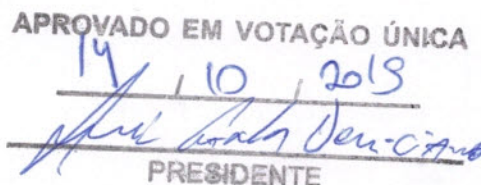 APROVADO EM VOTAÇÃO ÚNICA
14 / 10 / 2019
PRESIDENTE